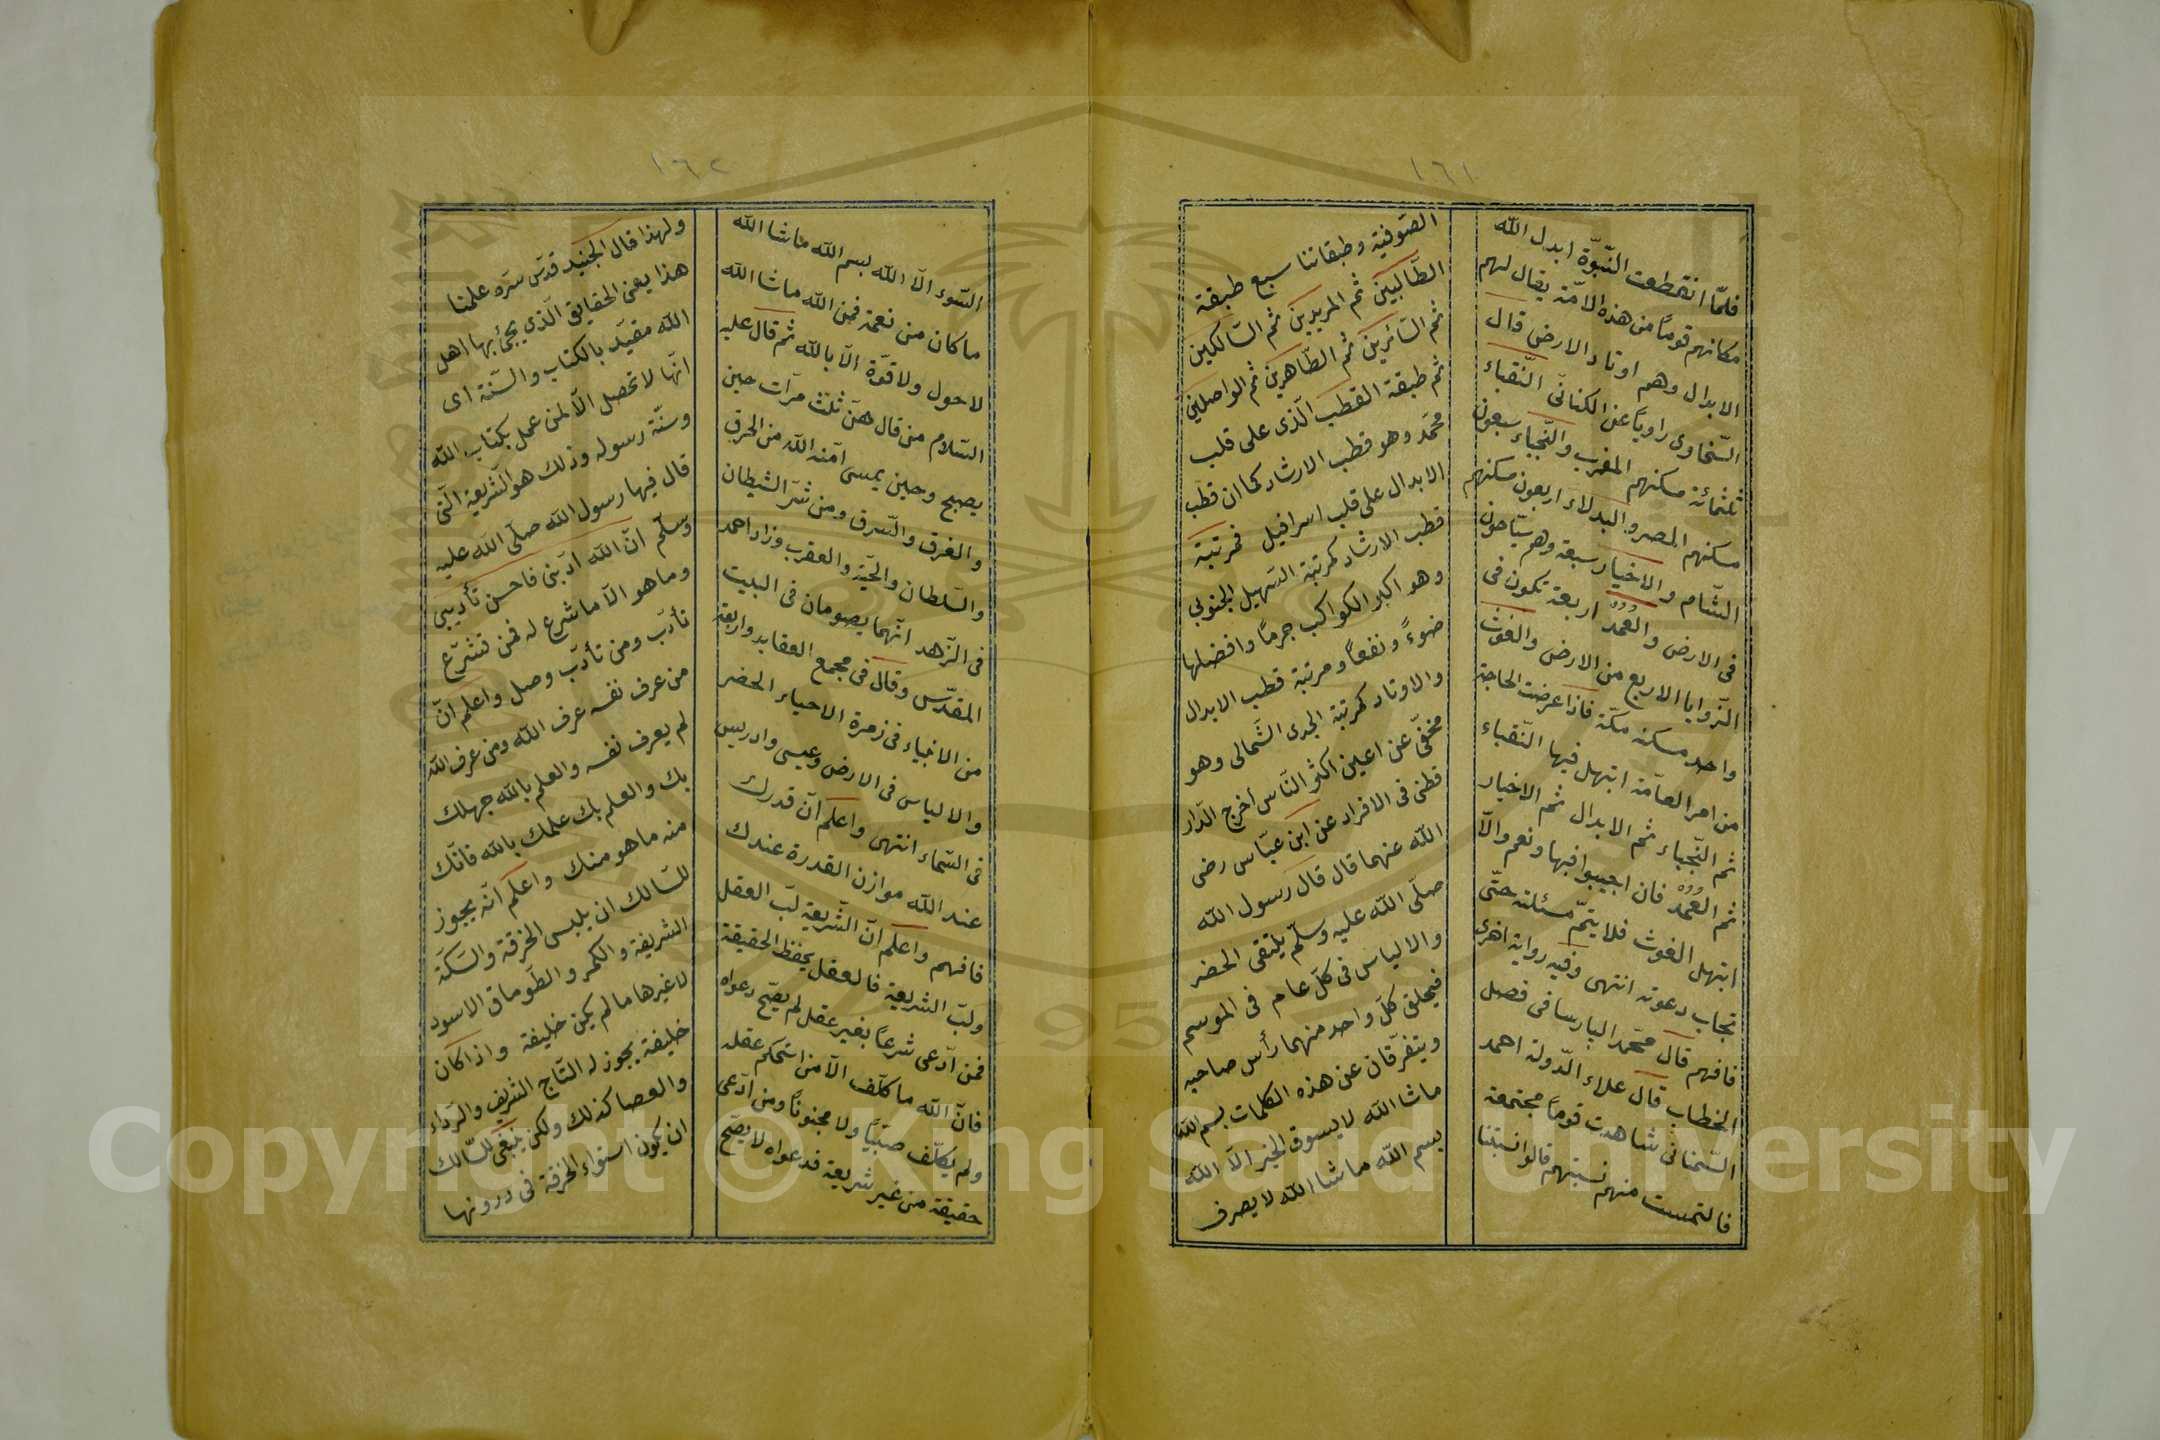 ١٦١
فلمّا انقطعت النّبوّة ابدل الله
مكانهم قومًا من هذه الامّة يقال لهم
الابدال وهم اوتاد الارض قال
السّخاوى راويًا عن الكنانّى النّقباء
ثلثمائة مسكنهم المغرب والنّجباء سبعون
مسكنهم المصر والبدلاء اربعون مسكنهم
الشّام والاخيار سبعة وهم سيّاحون
فى الارض والعُمُد اربعة تكون فى
الزّوايا الاربع من الارض والغوث
واحد مسكنه مكّة فاذا عرضت الحاجة
من امر العامّة ابتهل فيها النّقباء
ثم النّجباء ثم الابدال ثم الاخيار
ثم العُمُد فان اجيبوا فبها ونعم والّا
ابتهل الغوث فلا يتمّ مسئلته حتّى
تجاب دعوته انتهى وفيه رواية اخرى
فافهم قال محمّد الپارسا فى فصل
الخطاب قال علاء الدّولة احمد
السّمنانى شاهدت قومًا مجتمعة
فالتمست منهم نسبتهم قالوا نسبتنا
الصّوفيّة وطبقاتنا سبع طبقة
الطّالبين ثم المريدين ثم السّالكين
ثم السّائرين ثم الطّاهرين ثم الواصلين
ثم طبقة القطب الّذى على قلب
محمّد وهو قطب الارشاد كما ان قطب
الابدال على قلب اسرافيل فمرتبة
قطب الارشاد كمرتبة السّهيل الجنوبي
وهو اكبر الكواكب جرمًا وافضلها
ضوءً ونفعًا ومرتبة قطب الابدال
والاوتاد كمرتبة الجدى الشّمالى وهو
مخفىّ عن اعين اكثر النّاس اخرج الدّار
قطنى فى الافراد عن ابن عبّاس رضى
الله عنهما قال قال رسول الله
صلّى الله عليه وسلّم يلتقى الخضر
والالياس فى كلّ عام فى الموسم
فيحلق كلّ واحد منهما رأس صاحبه
ويتفرّقان عن هذه الكلمات بسم الله
ماشا الله لا يسوق الخير الّا الله
بسم الله ماشا الله لا يصرف
١٦٢
السّوء الّا الله بسم الله ماشا الله
ما كان من نعمة فمن الله ماشا الله
لا حول ولا قوّة الّا بالله ثم قال عليه
السّلام من قال هنّ ثلث مرّات حين
يصبح وحين يمسى آمنه الله من الحرق
والغرق والسّرق ومن شرّ الشيطان
والسّلطان والحيّة والعقرب وزاد احمد
فى الزّهد انّهما يصومان فى البيت
المقدّس وقال فى مجمع العقايد واربعة
من الانبياء فى زمرة الاحياء الخضر
والالياس فى الارض وعيسى وادريس
فى السّماء انتهى واعلم انّ قدرك
عند الله موازن القدرة عندك
فافهم واعلم انّ الشّريعة لبّ العقل
ولبّ الشريعة فالعقل يحفظ الحقيقة
فمن ادّعى شرعًا بغير عقل لم يصّح دعواه
فانّ الله ما كلّف الّا من استحكم عقله
ولم يكلّف صبيًّا ولا مجنونًا ومن ادّعى
حقيقة من غير شريعة فدعواه لا يصّح
ولهذا قال الجنيد قدّس سرّه علمنا
هذا يعنى الحقايق الّذى يجئ بها اهل
الله مقيّد بالكتاب والسّنة اى
انّها لا تحصل الّا لمن عمل بكتاب الله
وسنّة رسوله وذلك هو الشّريعة الّتى
قال فيها رسول الله صلّى الله عليه
وسلّم انّ الله ادّبنى فاحسن تأديبى
وما هو الّا ما شرع له فمن تشرّع
تأدّب ومن تأدّب وصل واعلم انّ
من عرف نفسه عرف الله ومن عرف الله
لم يعرف نفسه والعلم بالله جهلك
بك والعلم بك علمك بالله فانّك
منه ما هو منك واعلم انّه يجوز
للسّالك ان يلبس الخرقة والسّكّة
الشريفة والكمر والطّوماق الاسود
لا غيرها ما لم يكن خليفة واذا كان
خليفة يجوز له التّاج الشريف والرّداء
والعصا كذلك ولكن ينبغى للسّالك
ان يكون استواء الخرقة فى درونها
Copyright © King Saud University